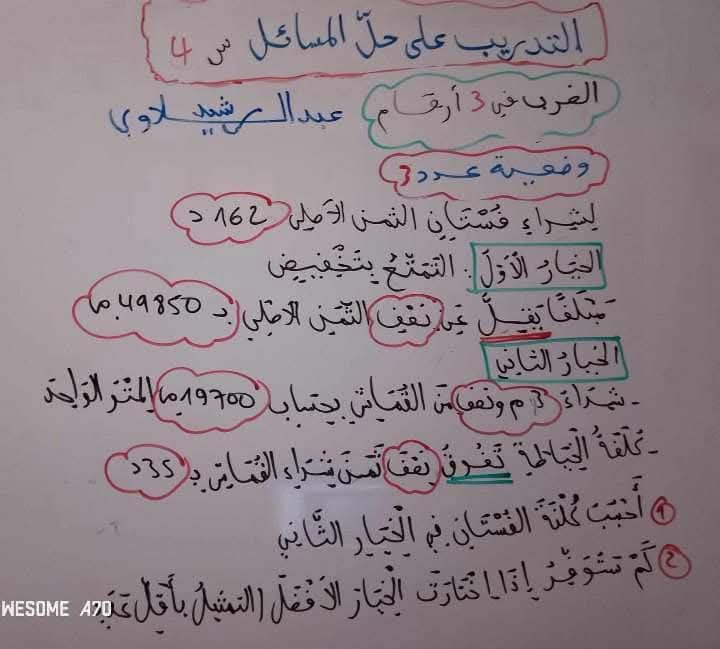 التدريب على حلّ المسائل س 4
الضرب في 3 أرقام
عبد الرشيد سلاوي
وضعية عدد 3
لِشِرَاءِ فُسْتَانٍ الثمن الأصلي 162 د
الخِيَارُ الأَوّلُ : التمتّعُ بتَخْفِيضٍ
مَبْلَغًا يَقِلُّ عَن نِصْفِ الثّمَنِ الأصلي بـ 49850 مي
الخيار الثاني
- شِرَاءُ 3 م ونصف مِنَ القُمَاشِ بِحِسَابِ 19700 مي المتر الواحد
- تكلفةُ الخِيَاطَةِ تَفُوقُ نِصْفَ ثَمَنِ شِرَاءِ القُمَاشِ بـ 35 د
1 أَحْسُبُ كُلْفَةَ الفُسْتَانِ فِي الخِيَارِ الثَّانِي
2 كَمْ سَتُوَفِّرُ إِذَا اِخْتَارَت الْخِيَارَ الأَفْضَلَ (التمثيل بأقل
WESOME A70